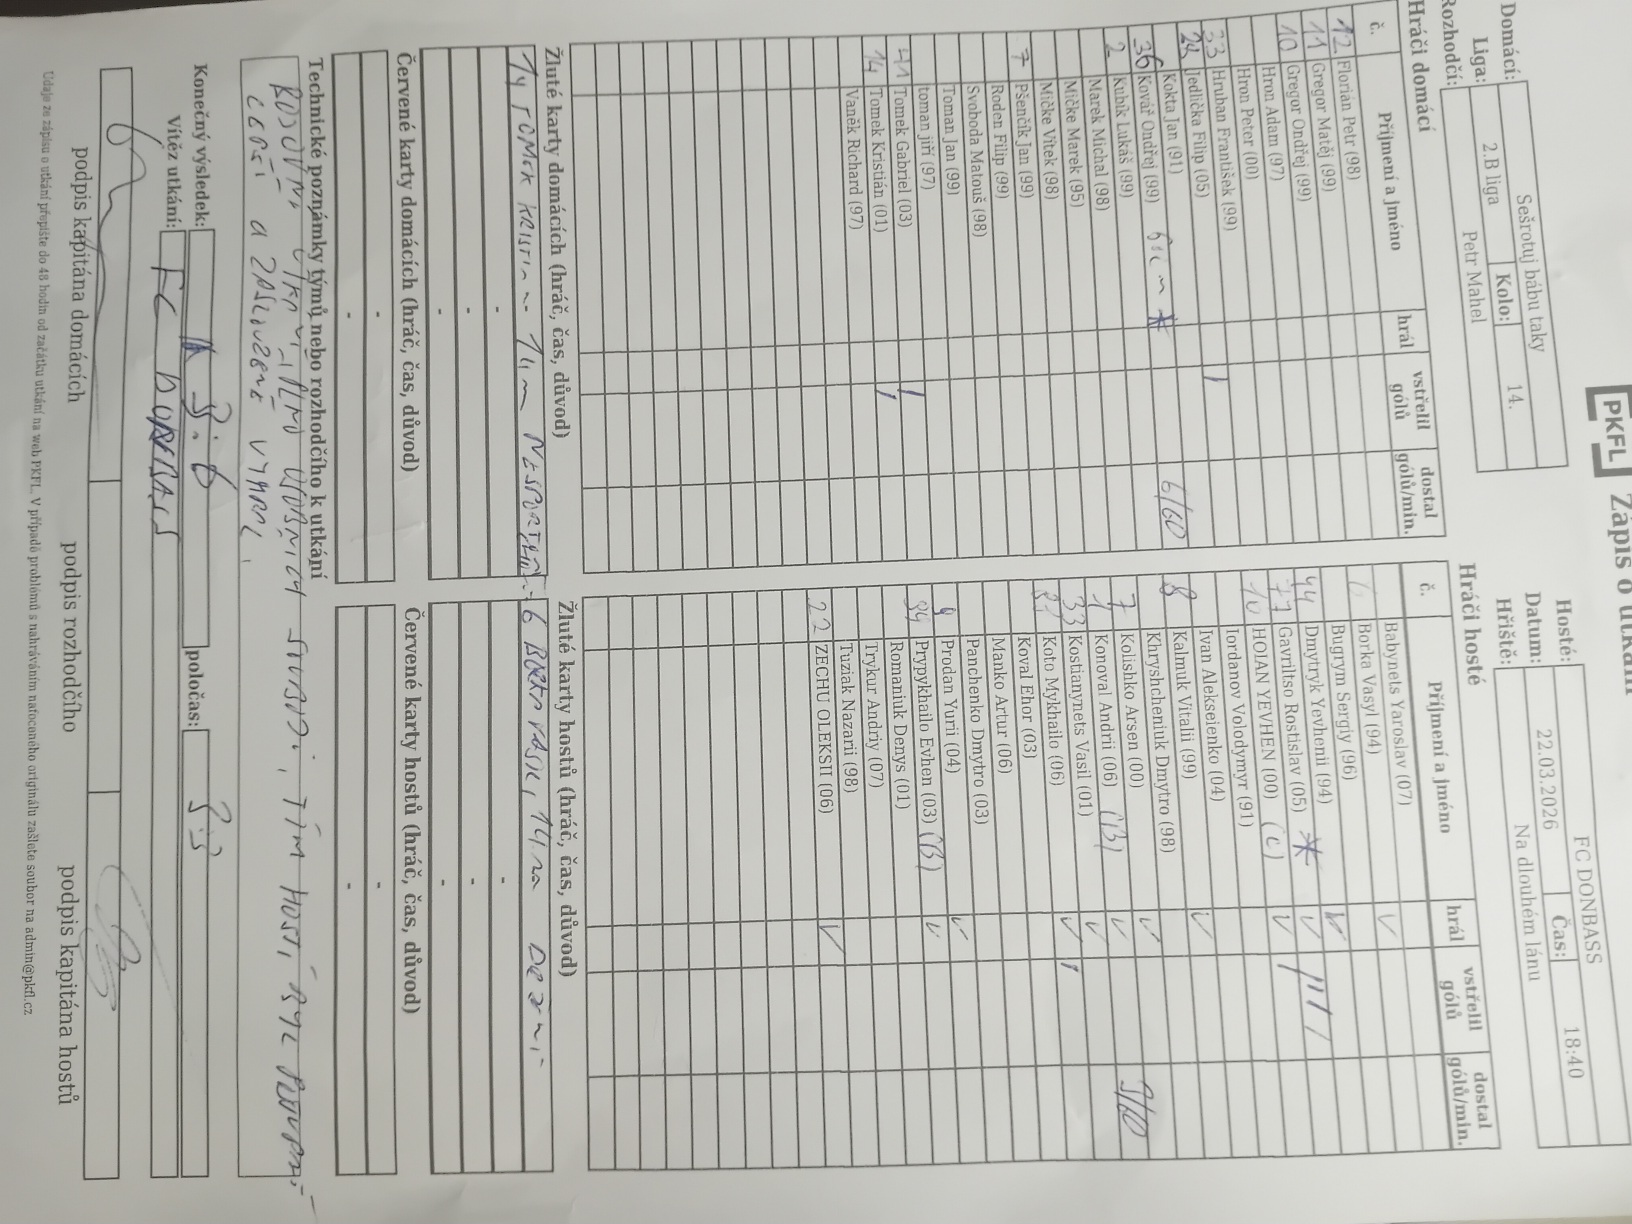 PKFL Zápis o utkání
Domácí: Sešrotuj bábu taky
Liga: 2.B liga Kolo: 14.
Rozhodčí: Petr Mahel
Hosté: FC DONBASS
Datum: 22.03.2026 Čas: 18:40
Hřiště: Na dlouhém lánu
Hráči domácí
č. Příjmení a jméno hrál vstřelil gólů dostal gólů/min.
12 Florián Petr (98)
11 Gregor Matěj (99)
10 Gregor Ondřej (99)
Hron Adam (97)
Hron Peter (00)
33 Hruban František (99) 1
24 Jedlička Filip (05)
Kokta Jan (91) 6/60
36 Kovář Ondřej (99)
2 Kubík Lukáš (99)
Marek Michal (98)
Mičke Marek (95)
Mičke Vítek (98)
7 Pšenčík Jan (99)
Roden Filip (99)
Svoboda Matouš (98)
Toman Jan (99)
toman jiří (97)
41 Tomek Gabriel (03) 1
14 Tomek Kristián (01) 1
Vaněk Richard (97)
Hráči hosté
č. Příjmení a jméno hrál vstřelil gólů dostal gólů/min.
Babynets Yaroslav (07)
6 Borka Vasyl (94)
Bugrym Sergiy (96)
44 Dmytryk Yevhenii (94) *
77 Gavriltso Rostislav (05)
10 HOIAN YEVHEN (00) (C)
Iordanov Volodymyr (91)
Ivan Alekseienko (04)
8 Kalmuk Vitalii (99)
Khryshcheniuk Dmytro (98)
7 Kolishko Arsen (00)
1 Konoval Andrii (06) (B) 3/60
33 Kostianynets Vasil (01)
Koto Mykhailo (06)
Koval Ehor (03)
Manko Artur (06)
Panchenko Dmytro (03)
9 Prodan Yurii (04)
Prypykhailo Evhen (03) (B)
Romaniuk Denys (01)
Trykur Andriy (07)
Tuziak Nazarii (98)
22 ZECHU OLEKSII (06)
Žluté karty domácích (hráč, čas, důvod)
14 TOMEK
-
-
Červené karty domácích (hráč, čas, důvod)
-
-
Žluté karty hostů (hráč, čas, důvod)
6
-
-
Červené karty hostů (hráč, čas, důvod)
-
-
Technické poznámky týmů nebo rozhodčího k utkání
BOJOVNÉ UTKÁNÍ, PLNO OSOBNÍCH SOUBOJŮ, TÝM HOSTÍ BYL
LEPŠÍ A ZASLOUŽENĚ VYHRÁL.
Konečný výsledek: 3:6 poločas: 3:3
Vítěz utkání: FC DONBASS
podpis kapitána domácích podpis rozhodčího podpis kapitána hostů
Údaje ze zápisu o utkání přepište do 48 hodin od začátku utkání na web PKFL. V případě problémů s nahráváním nafoceného originálu zašlete soubor na admin@pkfl.cz